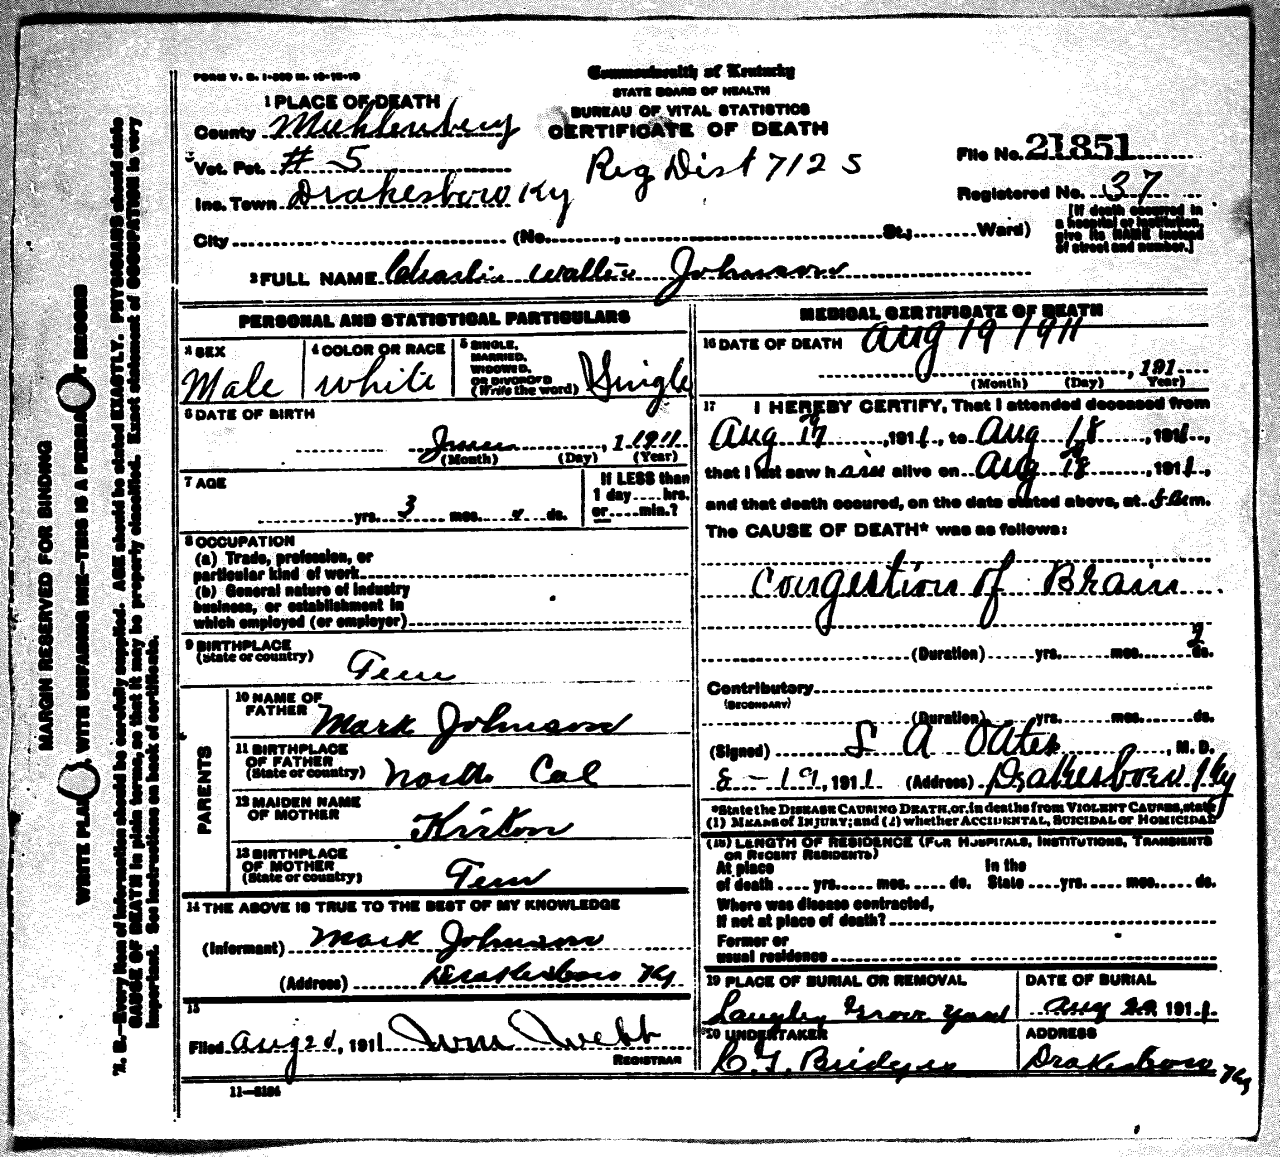 FORM V. S. 1-
Commonwealth of Kentucky
STATE BOARD OF HEALTH
BUREAU OF VITAL STATISTICS
CERTIFICATE OF DEATH
1 PLACE OF DEATH
County Muhlenberg
Vot. Pct. # 5
Inc. Town Drakesboro Ky
City (No. , St.; Ward)
Reg Dist 712 5
File No. 21851
Registered No. 37
[If death occurred in
a hospital or institution,
give its NAME instead
of street and number.]
2 FULL NAME Charlie Johnson
PERSONAL AND STATISTICAL PARTICULARS
3 SEX
Male
4 COLOR OR RACE
White
5 SINGLE,
MARRIED,
WIDOWED,
OR DIVORCED
(Write the word)
Single
6 DATE OF BIRTH
, 1 1911
(Month) (Day) (Year)
7 AGE
yrs. 3 mos. ds.
If LESS than
1 day hrs.
or min.?
8 OCCUPATION
(a) Trade, profession, or
particular kind of work
(b) General nature of industry
business, or establishment in
which employed (or employer)
9 BIRTHPLACE
(State or country)
Tenn
PARENTS
10 NAME OF
FATHER
Mark Johnson
11 BIRTHPLACE
OF FATHER
(State or country)
North Cal
12 MAIDEN NAME
OF MOTHER
Kirton
13 BIRTHPLACE
OF MOTHER
(State or country)
Tenn
14 THE ABOVE IS TRUE TO THE BEST OF MY KNOWLEDGE
(Informant) Mark Johnson
(Address) Drakesboro Ky
15
Filed Aug , 1911 Wm Webb
REGISTRAR
11-
MEDICAL CERTIFICATE OF DEATH
16 DATE OF DEATH Aug 19 1911
, 191
(Month) (Day) Year)
17 I HEREBY CERTIFY, That I attended deceased from
Aug 17 , 1911, to Aug 18 , 1911,
that I last saw him alive on Aug 18 , 1911,
and that death occured, on the date stated above, at 5 a m.
The CAUSE OF DEATH* was as follows:
Congestion of Brain
(Duration) yrs. mos. 2 ds.
Contributory
(SECONDARY)
(Duration) yrs. mos. ds.
(Signed) L A Oates , M. D.
8-19, 1911 (Address) Drakesboro Ky
*State the DISEASE CAUSING DEATH, or, in deaths from VIOLENT CAUSES, state
(1) MEANS of INJURY; and (2) whether ACCIDENTAL, SUICIDAL or HOMICIDAL
(18) LENGTH OF RESIDENCE (FOR HOSPITALS, INSTITUTIONS, TRANSIENTS
OR RECENT RESIDENTS)
At place
of death yrs. mos. ds.
In the
State yrs. mos. ds.
Where was disease contracted,
if not at place of death?
Former or
usual residence
19 PLACE OF BURIAL OR REMOVAL
Langley Grave yard
DATE OF BURIAL
Aug 20 1911
20 UNDERTAKER
C. T. Bridges
ADDRESS
Drakesboro Ky
MARGIN RESERVED FOR BINDING
WRITE PLA , WITH UNFADING INK—THIS IS A PERMA T RECORD
N. B.—Every item of information should be carefully supplied. AGE should be stated EXACTLY. PHYSICIANS should state
CAUSE OF DEATH in plain terms, so that it may be properly classified. Exact statement of OCCUPATION is very
important. See instructions on back of certificate.